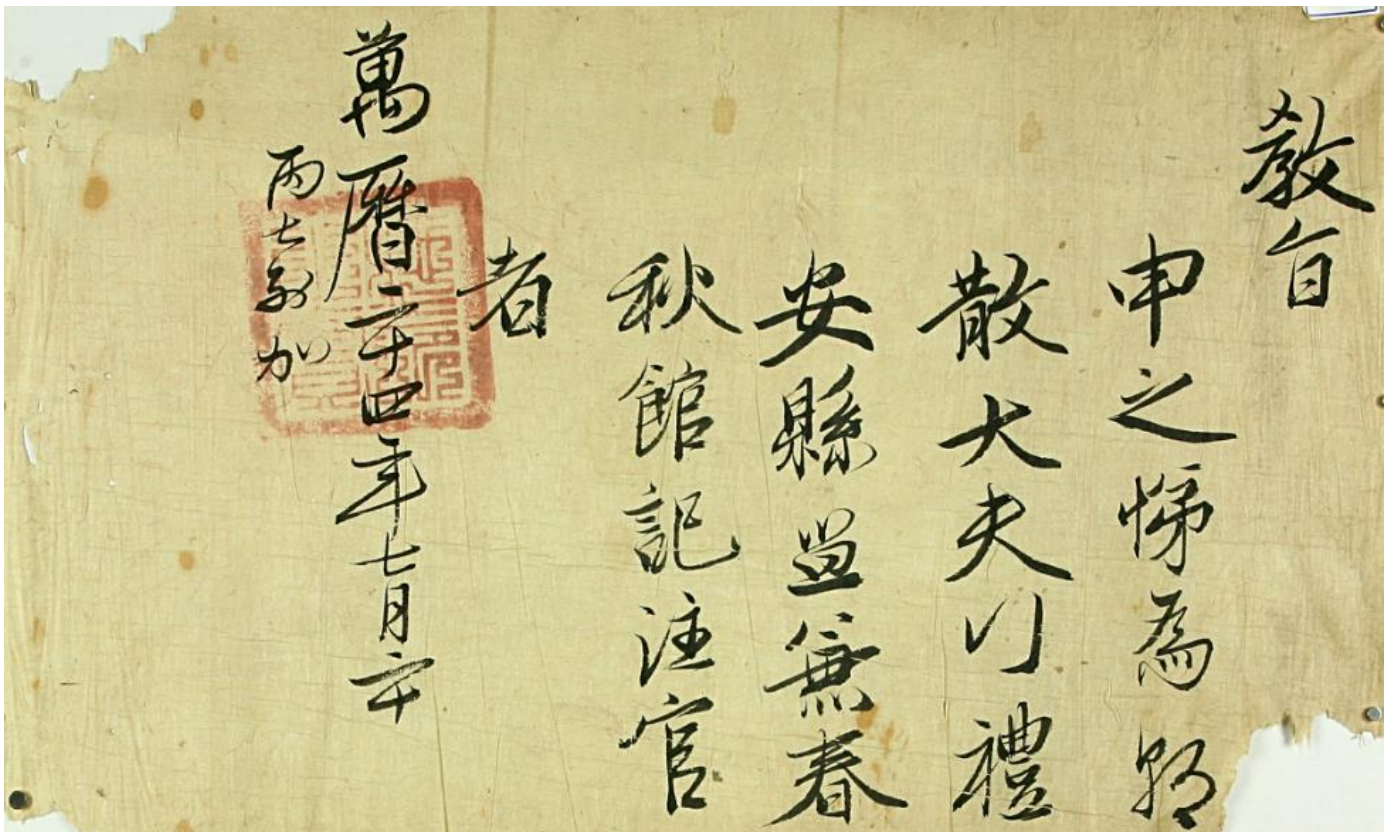 教旨
申之悌為朝
散大夫行禮
安縣監兼春
秋館記注官
者
萬曆二十四年七月二十
丙七別加